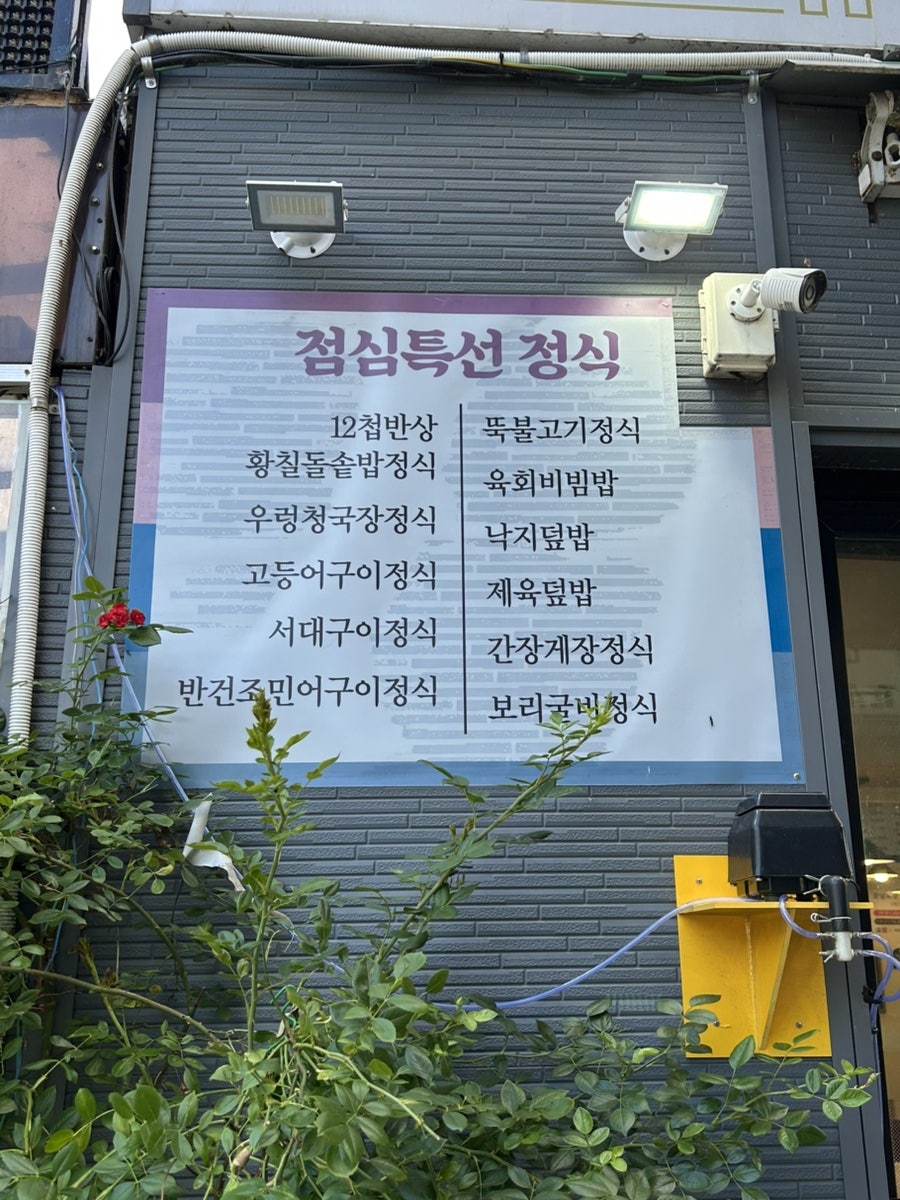 점심특선 정식
12첩반상
황칠돌솥밥정식
우렁청국장정식
고등어구이정식
서대구이정식
반건조민어구이정식
뚝불고기정식
육회비빔밥
낙지덮밥
제육덮밥
간장게장정식
보리굴비정식